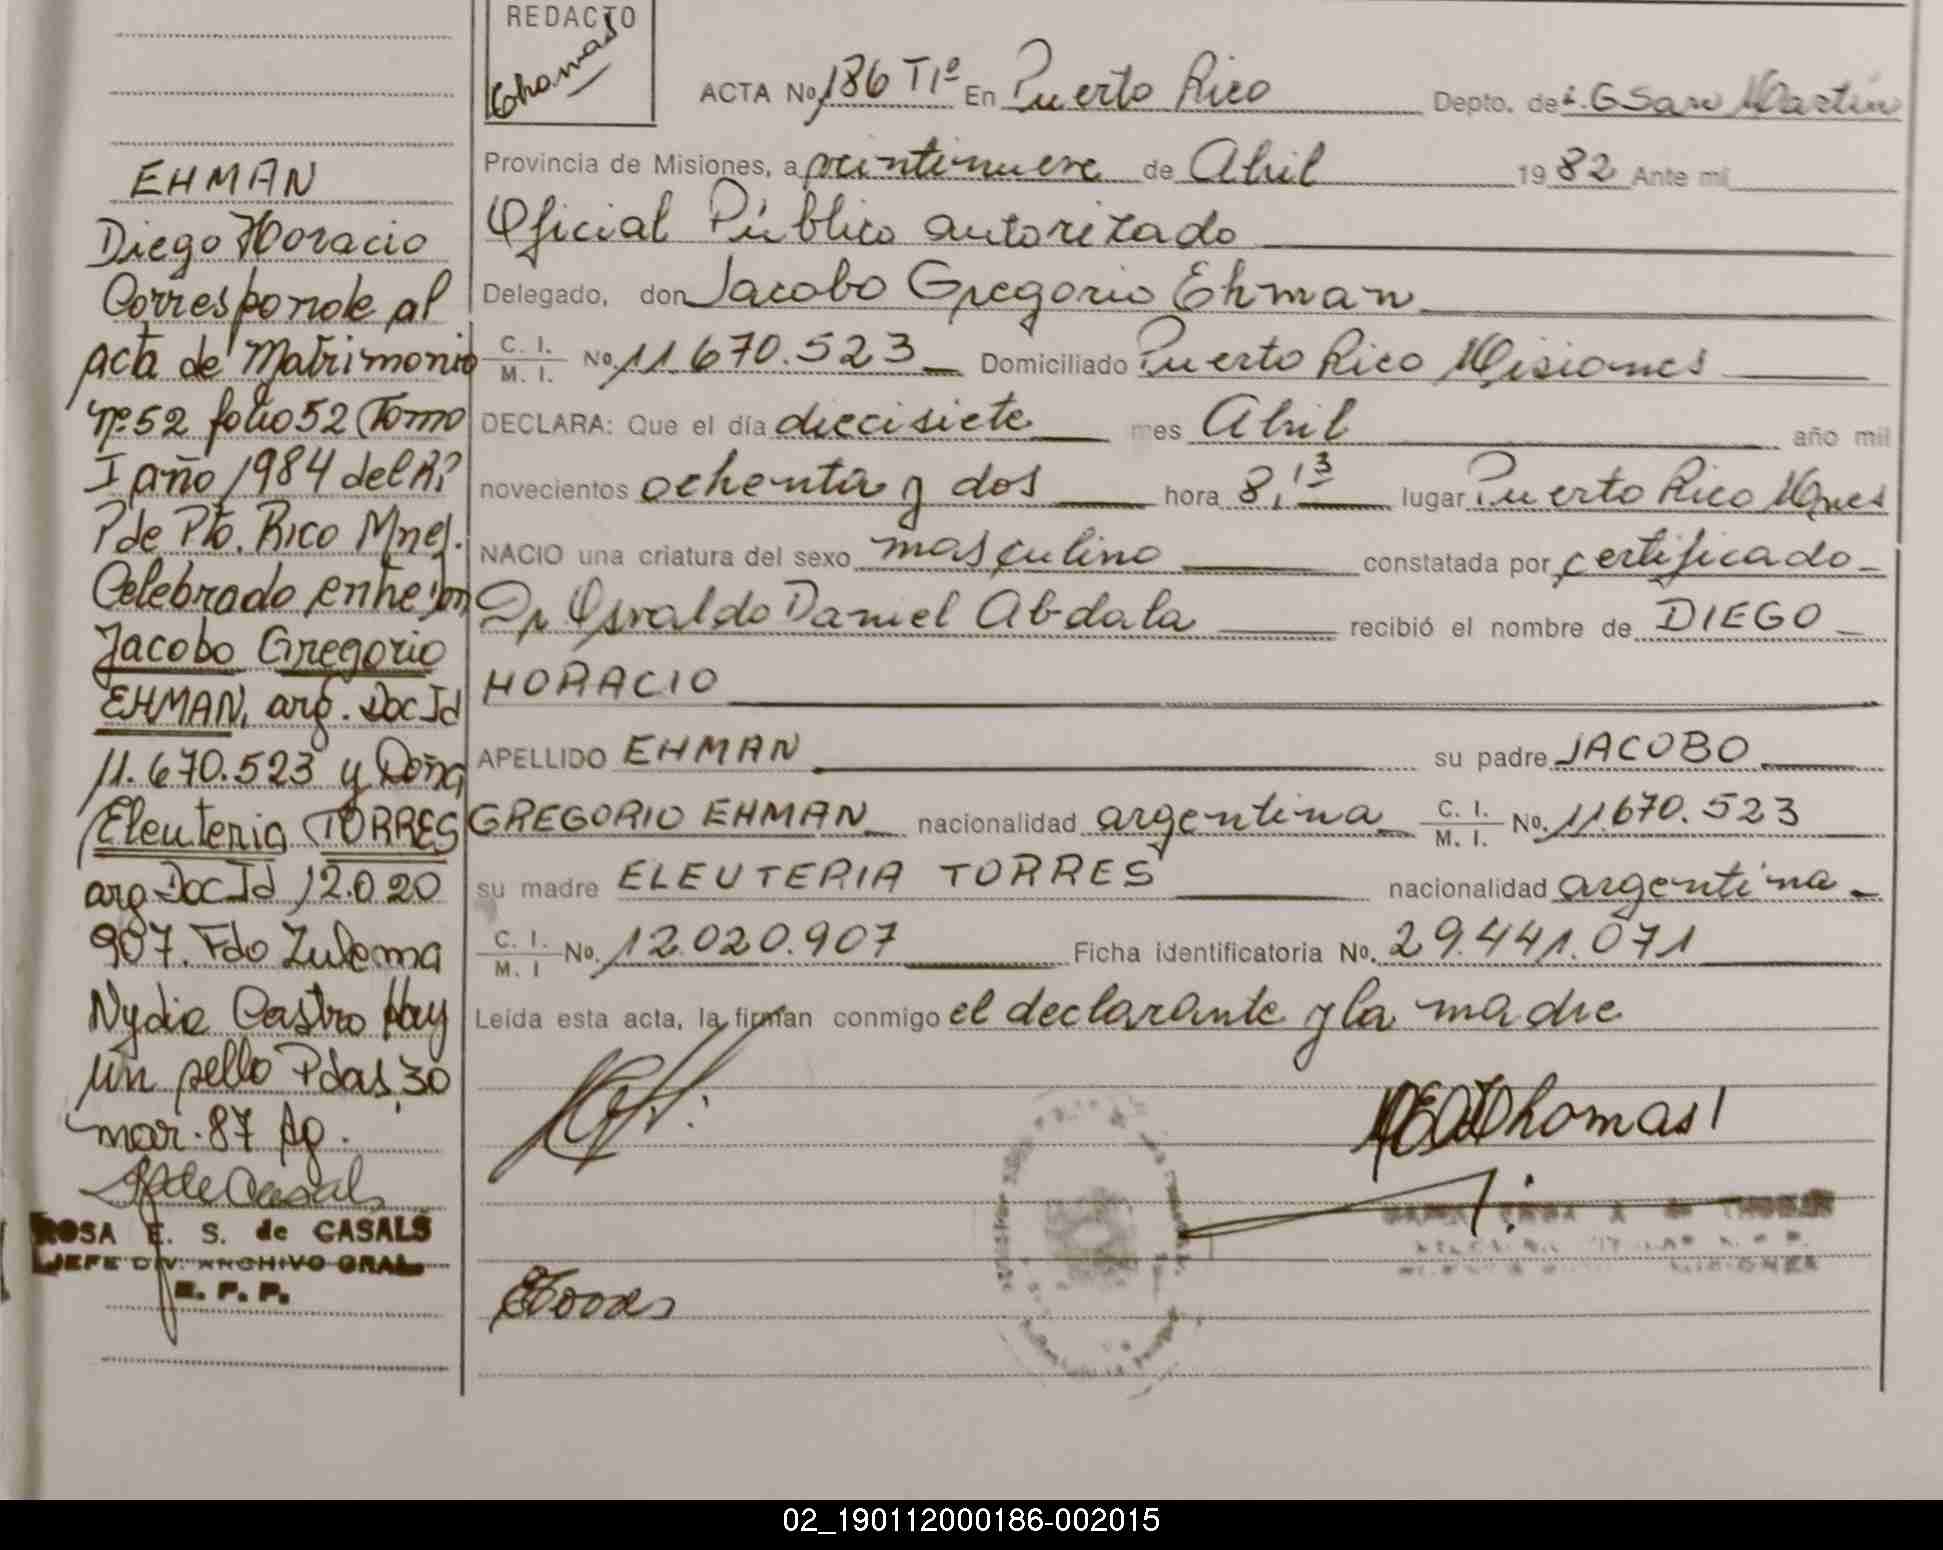 REDACTO
Thomas
ACTA No 186 T1º En Puerto Rico Depto. de L. G San Martín
Provincia de Misiones, a veintinueve de Abril 1982 Ante mi
Oficial Público autorizado
Delegado, don Jacobo Gregorio Ehman
C. I. / M. I. No. 11.670.523 Domiciliado Puerto Rico Misiones
DECLARA: Que el día diecisiete mes Abril año mil
novecientos ochenta y dos hora 8,13 lugar Puerto Rico Mnes
NACIO una criatura del sexo masculino constatada por certificado
Dr Osvaldo Daniel Abdala recibió el nombre de DIEGO
HORACIO
APELLIDO EHMAN su padre JACOBO
GREGORIO EHMAN nacionalidad argentina C. I. / M. I. No. 11.670.523
su madre ELEUTERIA TORRES nacionalidad argentina
C. I. / M. I No. 12.020.907 Ficha identificatoria No. 29.441.071
Leída esta acta, la firman conmigo el declarante y la madre
Thomas
EHMAN
Diego Horacio
Corresponde al
acta de Matrimonio
Nº 52 folio 52 Tomo
I año 1984 del R?
P de Pto. Rico Mnes.
Celebrado entre don
Jacobo Gregorio
EHMAN, arg. Doc Id
11.670.523 y Doña
Eleuteria TORRES
arg Doc Id 12.020
907. Fdo Zulema
Nydia Castro Hay
un sello Pdas, 30
mar. 87 Ag.
de Casals
ROSA E. S. de CASALS
JEFE DIV. ARCHIVO GRAL.
R. P. P.
02_190112000186-002015